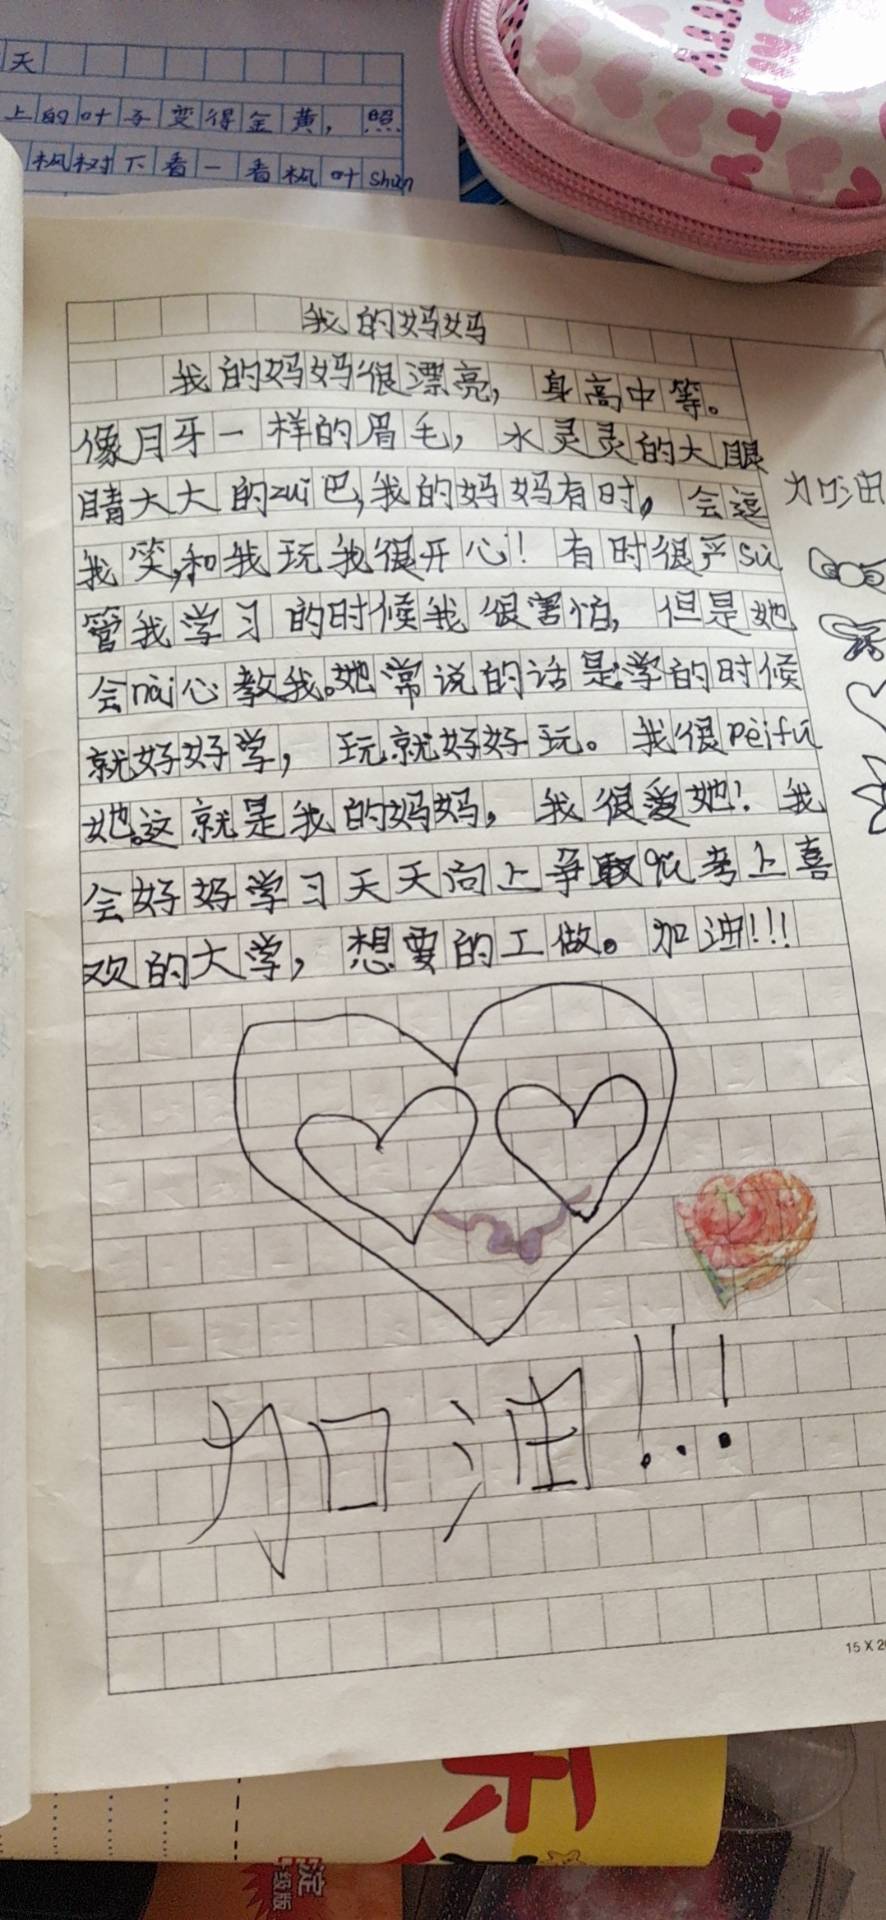 天
上的叶子变得金黄，照
枫树下看一看枫叶shùn
我的妈妈
我的妈妈很漂亮，身高中等。
像月牙一样的眉毛，水灵灵的大眼
睛大大的zuǐ巴，我的妈妈有时，会逗
我笑，和我玩我很开心！有时很严sù
管我学习的时候我很害怕，但是她
会nài心教我。她常说的话是:学的时候
就好好学，玩就好好玩。我很Pèifú
她。这就是我的妈妈，我很爱她！我
会好好学习天天向上争取考上喜
欢的大学，想要的工做。加油!!!
加油
加油!!!
15X20